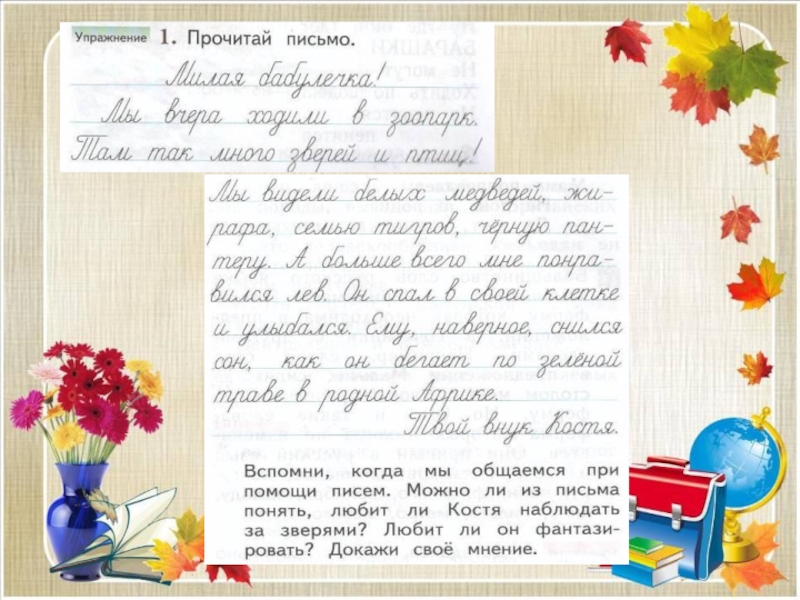 Упражнение 1. Прочитай письмо.
Милая бабулечка!
Мы вчера ходили в зоопарк.
Там так много зверей и птиц!
Мы видели белых медведей, жи-
рафа, семью тигров, чёрную пан-
теру. А больше всего мне понра-
вился лев. Он спал в своей клетке
и улыбался. Ему, наверное, снился
сон, как он бегает по зелёной
траве в родной Африке.
Твой внук Костя.
Вспомни, когда мы общаемся при
помощи писем. Можно ли из письма
понять, любит ли Костя наблюдать
за зверями? Любит ли он фантази-
ровать? Докажи своё мнение.